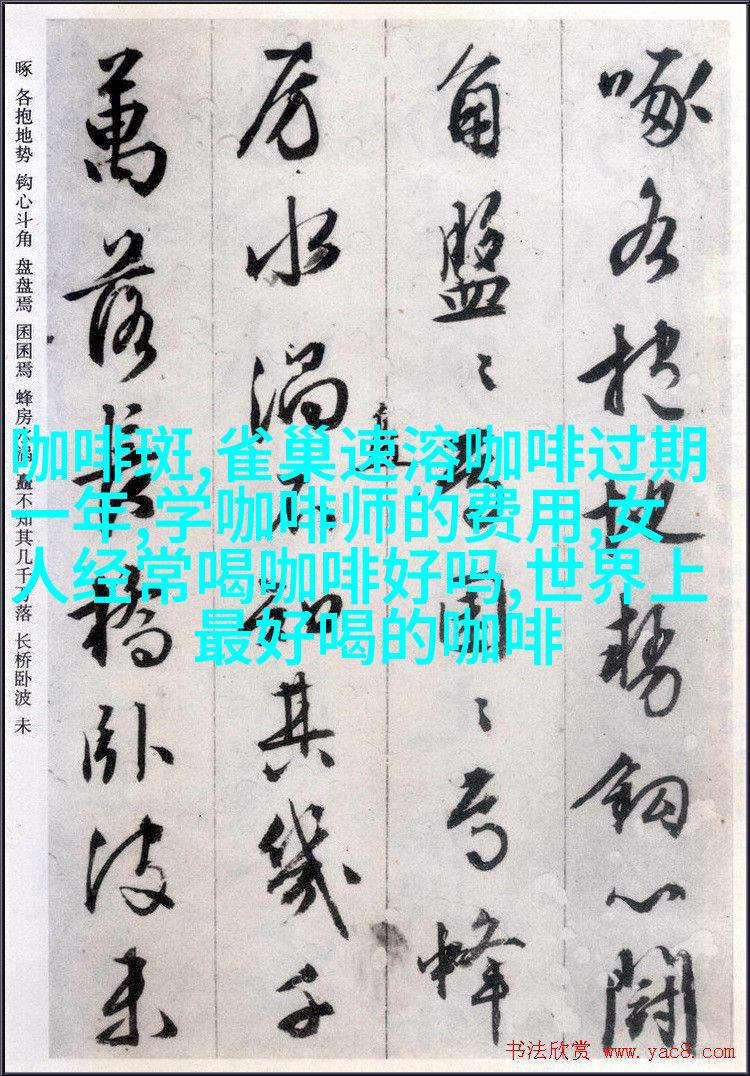 咖啡斑,雀巢速溶咖啡过期
一年,学咖啡师的费用,女
人经常喝咖啡好吗,世界上
最好喝的咖啡
啄各抱地勢鈎心闘
角盤〻焉囷〻焉蜂
房水渦矗不知其幾千
萬落長橋臥波未
啄 各抱地势 钩心斗角 盘盘焉 囷囷焉 蜂房水涡 矗不知其几千万落 长桥卧波 未
书法欣赏 www.yac8.com